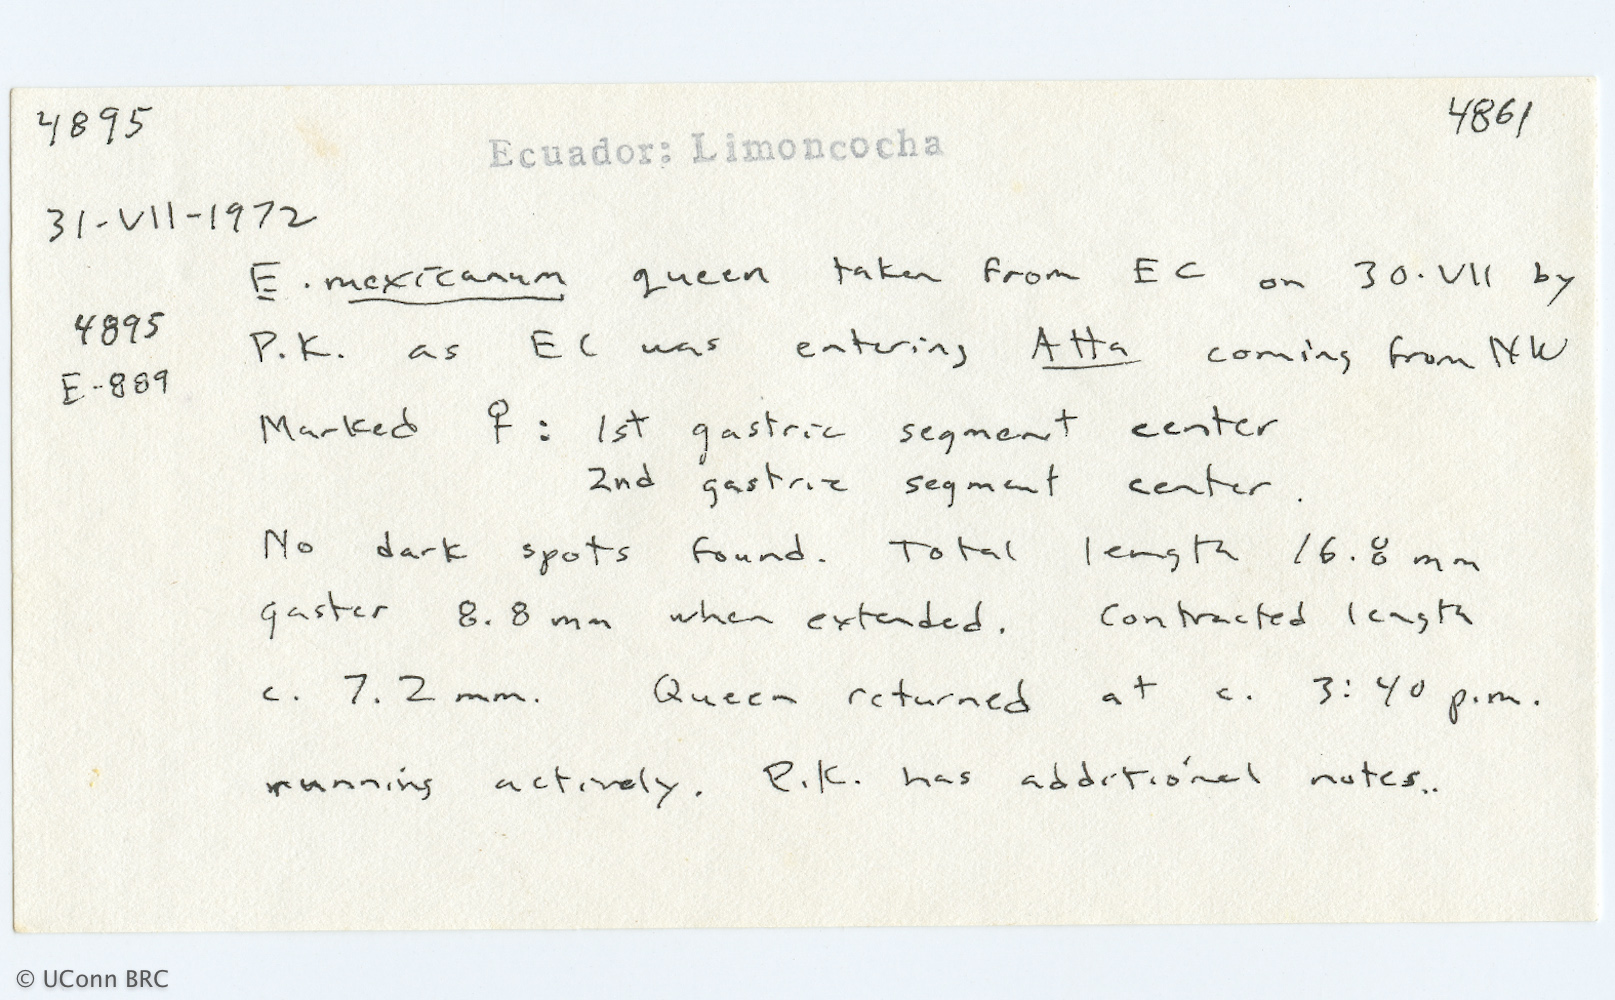 4895 4861
Ecuador: Limoncocha
31-VII-1972
E. mexicanum queen taken from EC on 30.VII by
4895 P.K. as EC was entering Atta coming from NW
E-889
Marked ♀: 1st gastric segment center
2nd gastric segment center.
No dark spots found. Total length 16.8 mm
gaster 8.8 mm when extended. Contracted length
c. 7.2 mm. Queen returned at c. 3:40 p.m.
running actively. P.K. has additional notes..
© UConn BRC